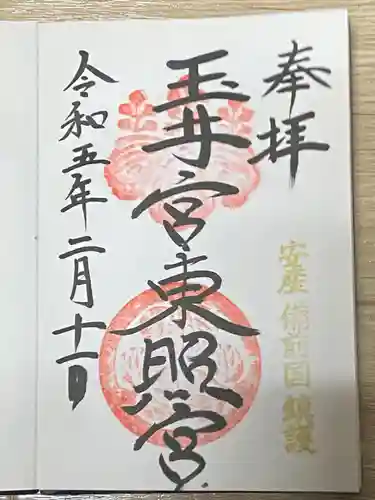 奉拝
安産 備前国 鎮護
玉井宮東照宮
令和五年二月十一日